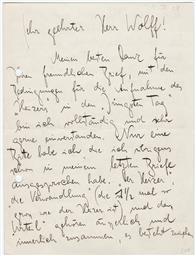 Sehr geehrter Herr Wolff!
Meinen besten Dank für
Ihren freundlichen Brief, mit den
Bedingungen für die Aufnahme des
"Heizers" in den "jüngsten Tag"
bin ich vollständig und sehr
gerne einverstanden. Nur eine
Bitte habe ich die ich übrigens
schon in meinem letzten Briefe
ausgesprochen habe. Der "Heizer",
die "Verwandlung" (die 1½ mal so
gross wie der Heizer ist) und das
"Urteil" gehören äusserlich und
innerlich zusammen, es besteht zwischen